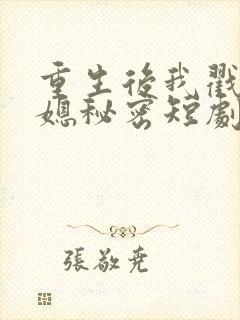 重生后我戳
媳秘密短劇
張敬堯